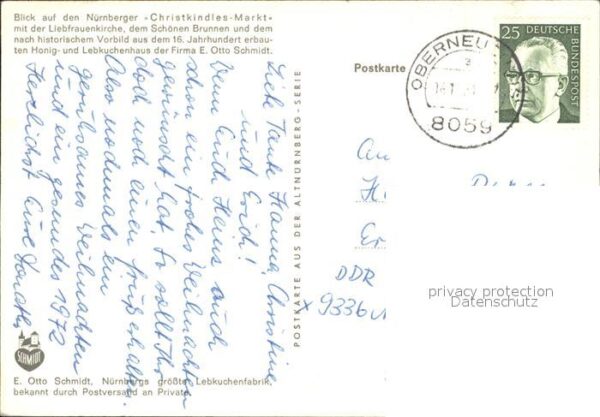 Blick auf den Nürnberger »Christkindles-Markt«
mit der Liebfrauenkirche, dem Schönen Brunnen und dem
nach historischem Vorbild aus dem 16. Jahrhundert erbau-
ten Honig- und Lebkuchenhaus der Firma E. Otto Schmidt.
Liebe Tante Hanna, Christine
und Erich!
Wenn Euch Hans auch
schon ein frohes Weihnachten
gewünscht hat, so sollt Ihr
doch noch einen Gruß erhalten.
Also nochmals ein
geruhsames Weihnachten
und ein gesundes 1972
Herzlichst Eure
SCHMIDT
E. Otto Schmidt, Nürnbergs größte Lebkuchenfabrik,
bekannt durch Postversand an Private.
POSTKARTE AUS DER ALTNÜRNBERG-SERIE
Postkarte
OBERNEU
8059
25 DEUTSCHE
BUNDESPOST
An
DDR
x 9336
privacy protection
Datenschutz